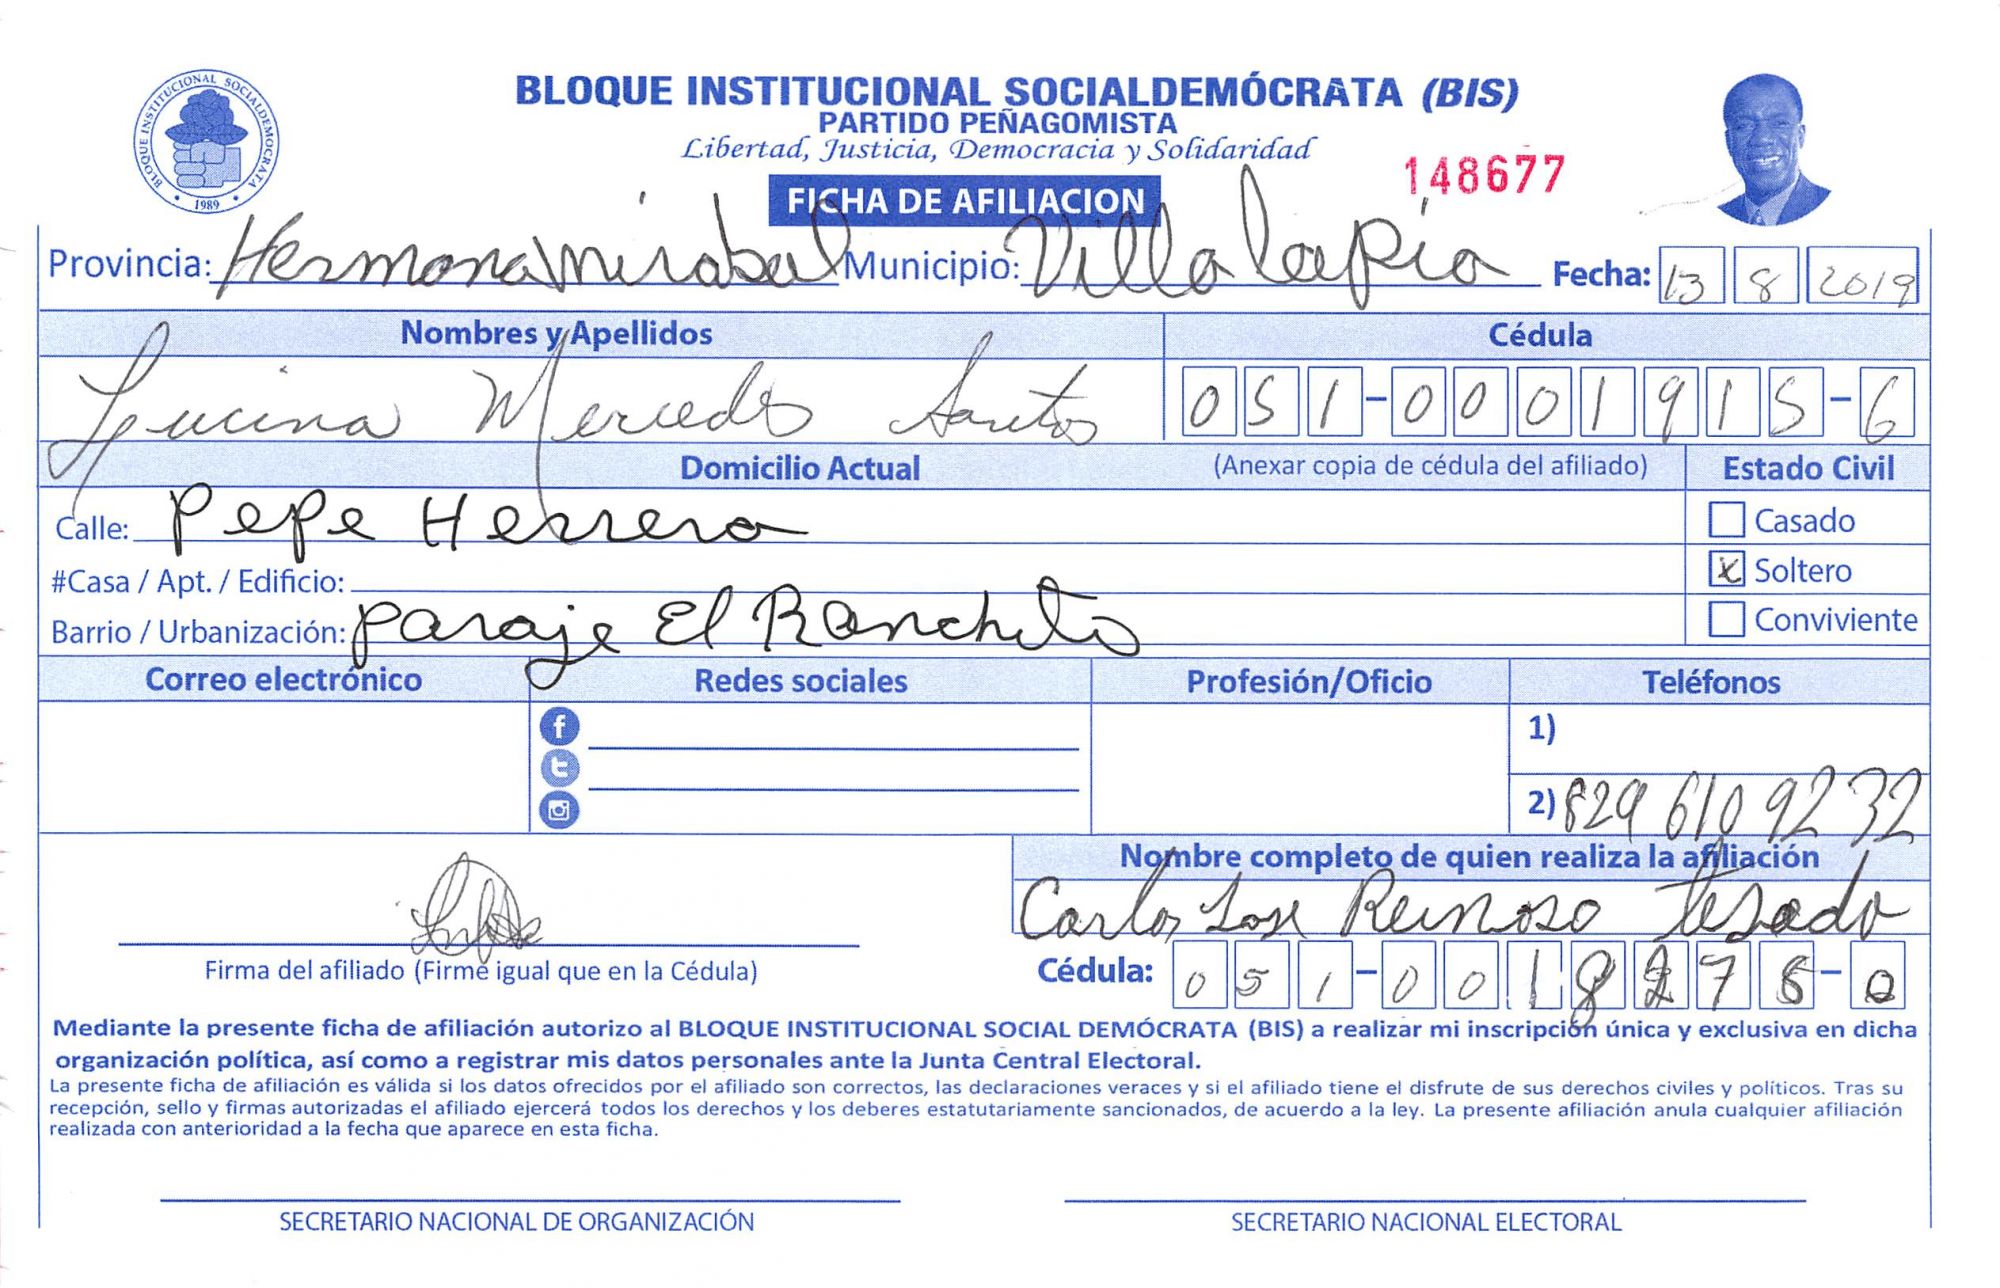 BLOQUE INSTITUCIONAL SOCIALDEMOCRATA
1989
BLOQUE INSTITUCIONAL SOCIALDEMÓCRATA (BIS)
PARTIDO PEÑAGOMISTA
Libertad, Justicia, Democracia y Solidaridad
148677
FICHA DE AFILIACION
Provincia: Hermana mirabal Municipio: Villa tapia Fecha: 13 8 2019
Nombres y Apellidos Cédula
Lucina Mercedes Santos 051-0001915-6
Domicilio Actual (Anexar copia de cédula del afiliado) Estado Civil
Calle: Pepe Herrera Casado
#Casa / Apt. / Edificio: x Soltero
Barrio / Urbanización: Paraje El Ranchito Conviviente
Correo electrónico Redes sociales Profesión/Oficio Teléfonos
1)
2) 829 610 9232
Nombre completo de quien realiza la afiliación
Carlos Jose Reinoso
Firma del afiliado (Firme igual que en la Cédula) Cédula: 051-001827
Mediante la presente ficha de afiliación autorizo al BLOQUE INSTITUCIONAL SOCIAL DEMÓCRATA (BIS) a realizar mi inscripción única y exclusiva en dicha
organización política, así como a registrar mis datos personales ante la Junta Central Electoral.
La presente ficha de afiliación es válida si los datos ofrecidos por el afiliado son correctos, las declaraciones veraces y si el afiliado tiene el disfrute de sus derechos civiles y políticos. Tras su
recepción, sello y firmas autorizadas el afiliado ejercerá todos los derechos y los deberes estatutariamente sancionados, de acuerdo a la ley. La presente afiliación anula cualquier afiliación
realizada con anterioridad a la fecha que aparece en esta ficha.
SECRETARIO NACIONAL DE ORGANIZACIÓN SECRETARIO NACIONAL ELECTORAL